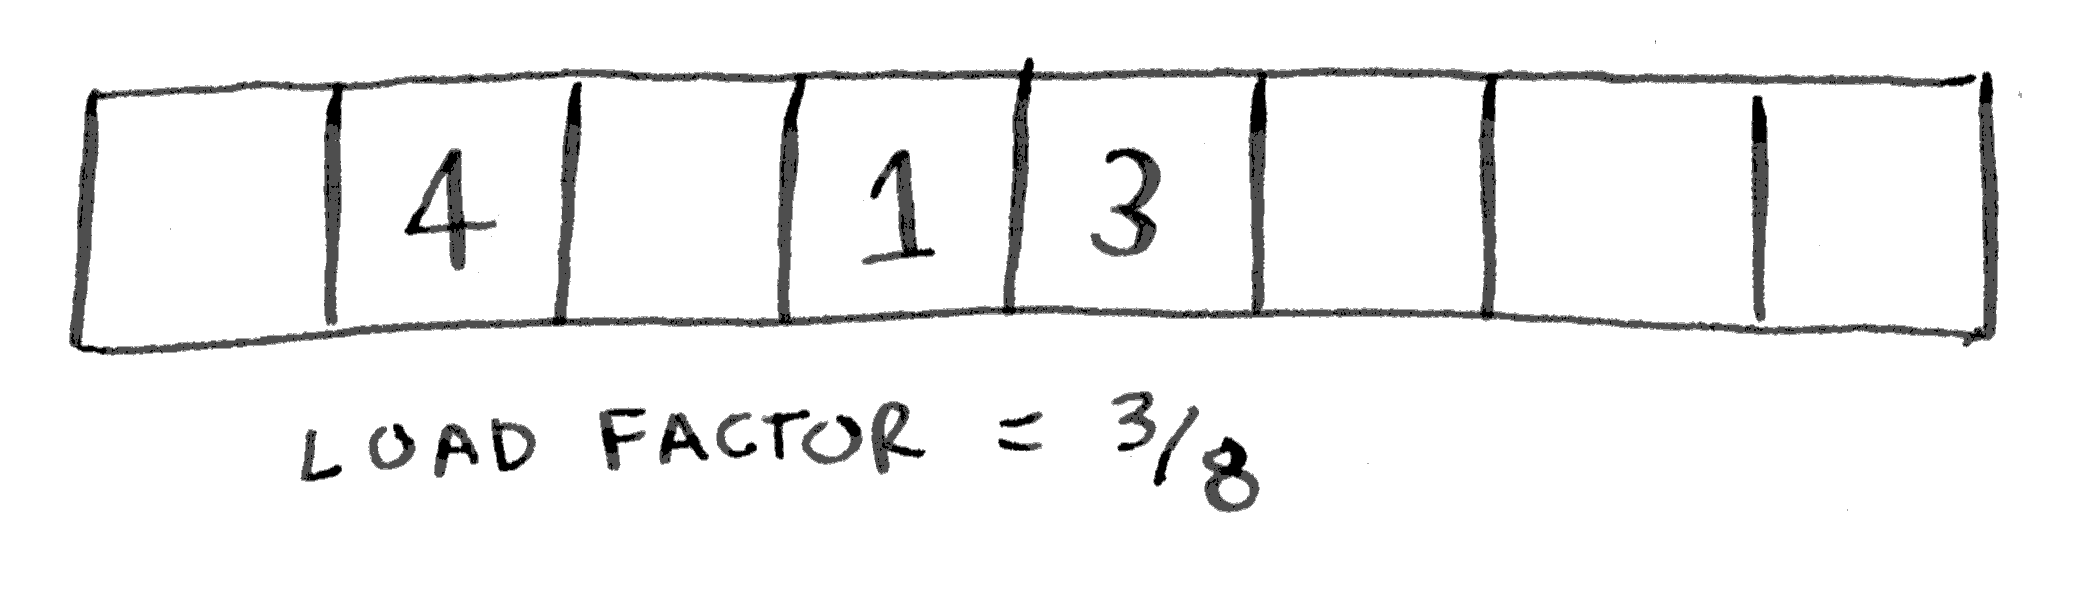 4 1 3
LOAD FACTOR = 3/8